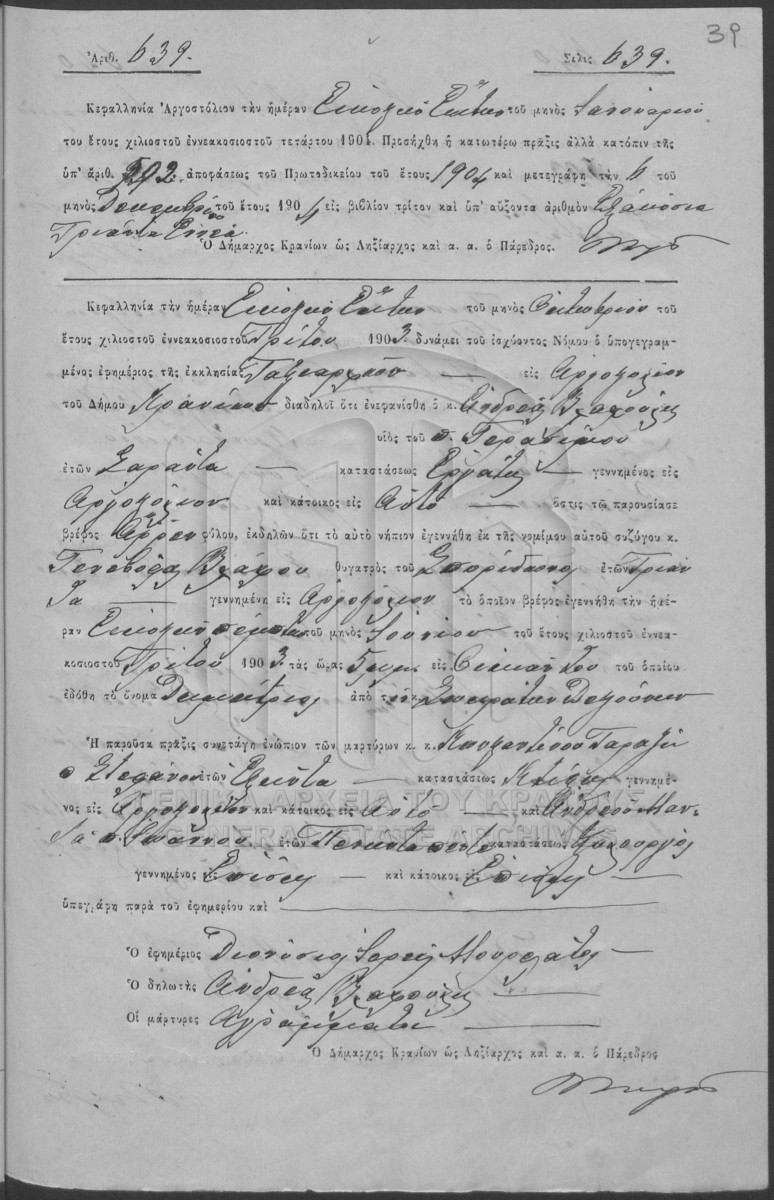 39
Ἀριθ. 639. Σελὶς 639.
Κεφαλληνία Ἀργοστόλιον τὴν ἡμέραν Εἰκοστὴν Ἕκτην τοῦ μηνὸς Ἰανουαρίου
του ἔτους χιλιοστοῦ ἐννεακοσιοστοῦ τετάρτου 1904. Προσήχθη ἡ κατωτέρω πρᾶξις ἀλλὰ κατόπιν τῆς
ὑπ' ἀριθ. 592 ἀποφάσεως τοῦ Πρωτοδικείου τοῦ ἔτους 1904 καὶ μετεγράφη τὴν 6 τοῦ
μηνὸς Δεκεμβρίου τοῦ ἔτους 1904 εἰς βιβλίον τρίτον καὶ ὑπ' αὔξοντα ἀριθμὸν Ἑξακόσια
Τριάντα Ἐννέα
Ὁ Δήμαρχος Κρανίων ὡς Ληξίαρχος καὶ α. α. ὁ Πάρεδρος.
Κεφαλληνία τὴν ἡμέραν Εἰκοστὴν Ἕκτην τοῦ μηνὸς Ὀκτωβρίου τοῦ
ἔτους χιλιοστοῦ ἐννεακοσιοστοῦ Τρίτου 1903. δυνάμει τοῦ ἰσχύοντος Νόμου ὁ ὑπογεγραμ-
μένος ἐφημέριος τῆς ἐκκλησίας Ταξιαρχῶν εἰς Ἀργοστόλιον
τοῦ Δήμου Κρανίων διαδηλοῖ ὅτι ἐνεφανίσθη ὁ κ. Ἀνδρέας
υἱὸς τοῦ π. Γερασίμου
ἐτῶν Σαράντα καταστάσεως Ἐργάτης γεννημένος εἰς
Ἀργοστόλιον καὶ κάτοικος εἰς Αὐτό ὅστις τῷ παρουσίασε
βρέφος Ἄρρεν φύλου, ἐκδηλῶν ὅτι τὸ αὐτὸ νήπιον ἐγεννήθη ἐκ τῆς νομίμου αὐτοῦ συζύγου κ.
θυγατρὸς τοῦ Σπυρίδωνος ἐτῶν Τριάν
τα γεννημένη εἰς Ἀργοστόλιον τὸ ὁποῖον βρέφος ἐγεννήθη τὴν ἡμέ-
ραν Εἰκοστὴν πέμπτην τοῦ μηνὸς Ἰουνίου τοῦ ἔτους χιλιοστοῦ ἐννεα-
κοσιοστοῦ Τρίτου 1903. τὰς ὥρας 5 μμ εἰς Οἰκίαν του τοῦ ὁποίου
ἐδόθη τὸ ὄνομα Δημήτριος ἀπὸ τὸν κ.
Ἡ παροῦσα πρᾶξις συνετάγη ἐνώπιον τῶν μαρτύρων κ. κ. Κωνσταντίνου
π Στεφάνου ἐτῶν Ἑξῆντα καταστάσεως Κτίστης γεννημέ-
νος εἰς Ἀργοστόλιον καὶ κάτοικος εἰς Αὐτό καὶ Ἀνδρέου
π. Ἰωάννου ἐτῶν Πενῆντα πέντε καταστάσεως
γεννημένος εἰς Ἐπίσης καὶ κάτοικος εἰς Ἐπίσης
ὑπεγράφη παρὰ τοῦ ἐφημερίου καὶ
Ὁ ἐφημέριος Διονύσιος Ἱερεὺς
Ὁ δηλωτὴς Ἀνδρέας
Οἱ μάρτυρες Ἀγράμματοι
Ὁ Δήμαρχος Κρανίων ὡς Ληξίαρχος καὶ α. α. ὁ Πάρεδρος
ΓΕΝΙΚΑ ΑΡΧΕΙΑ ΤΟΥ ΚΡΑΤΟΥΣ
GENERAL STATE ARCHIVES